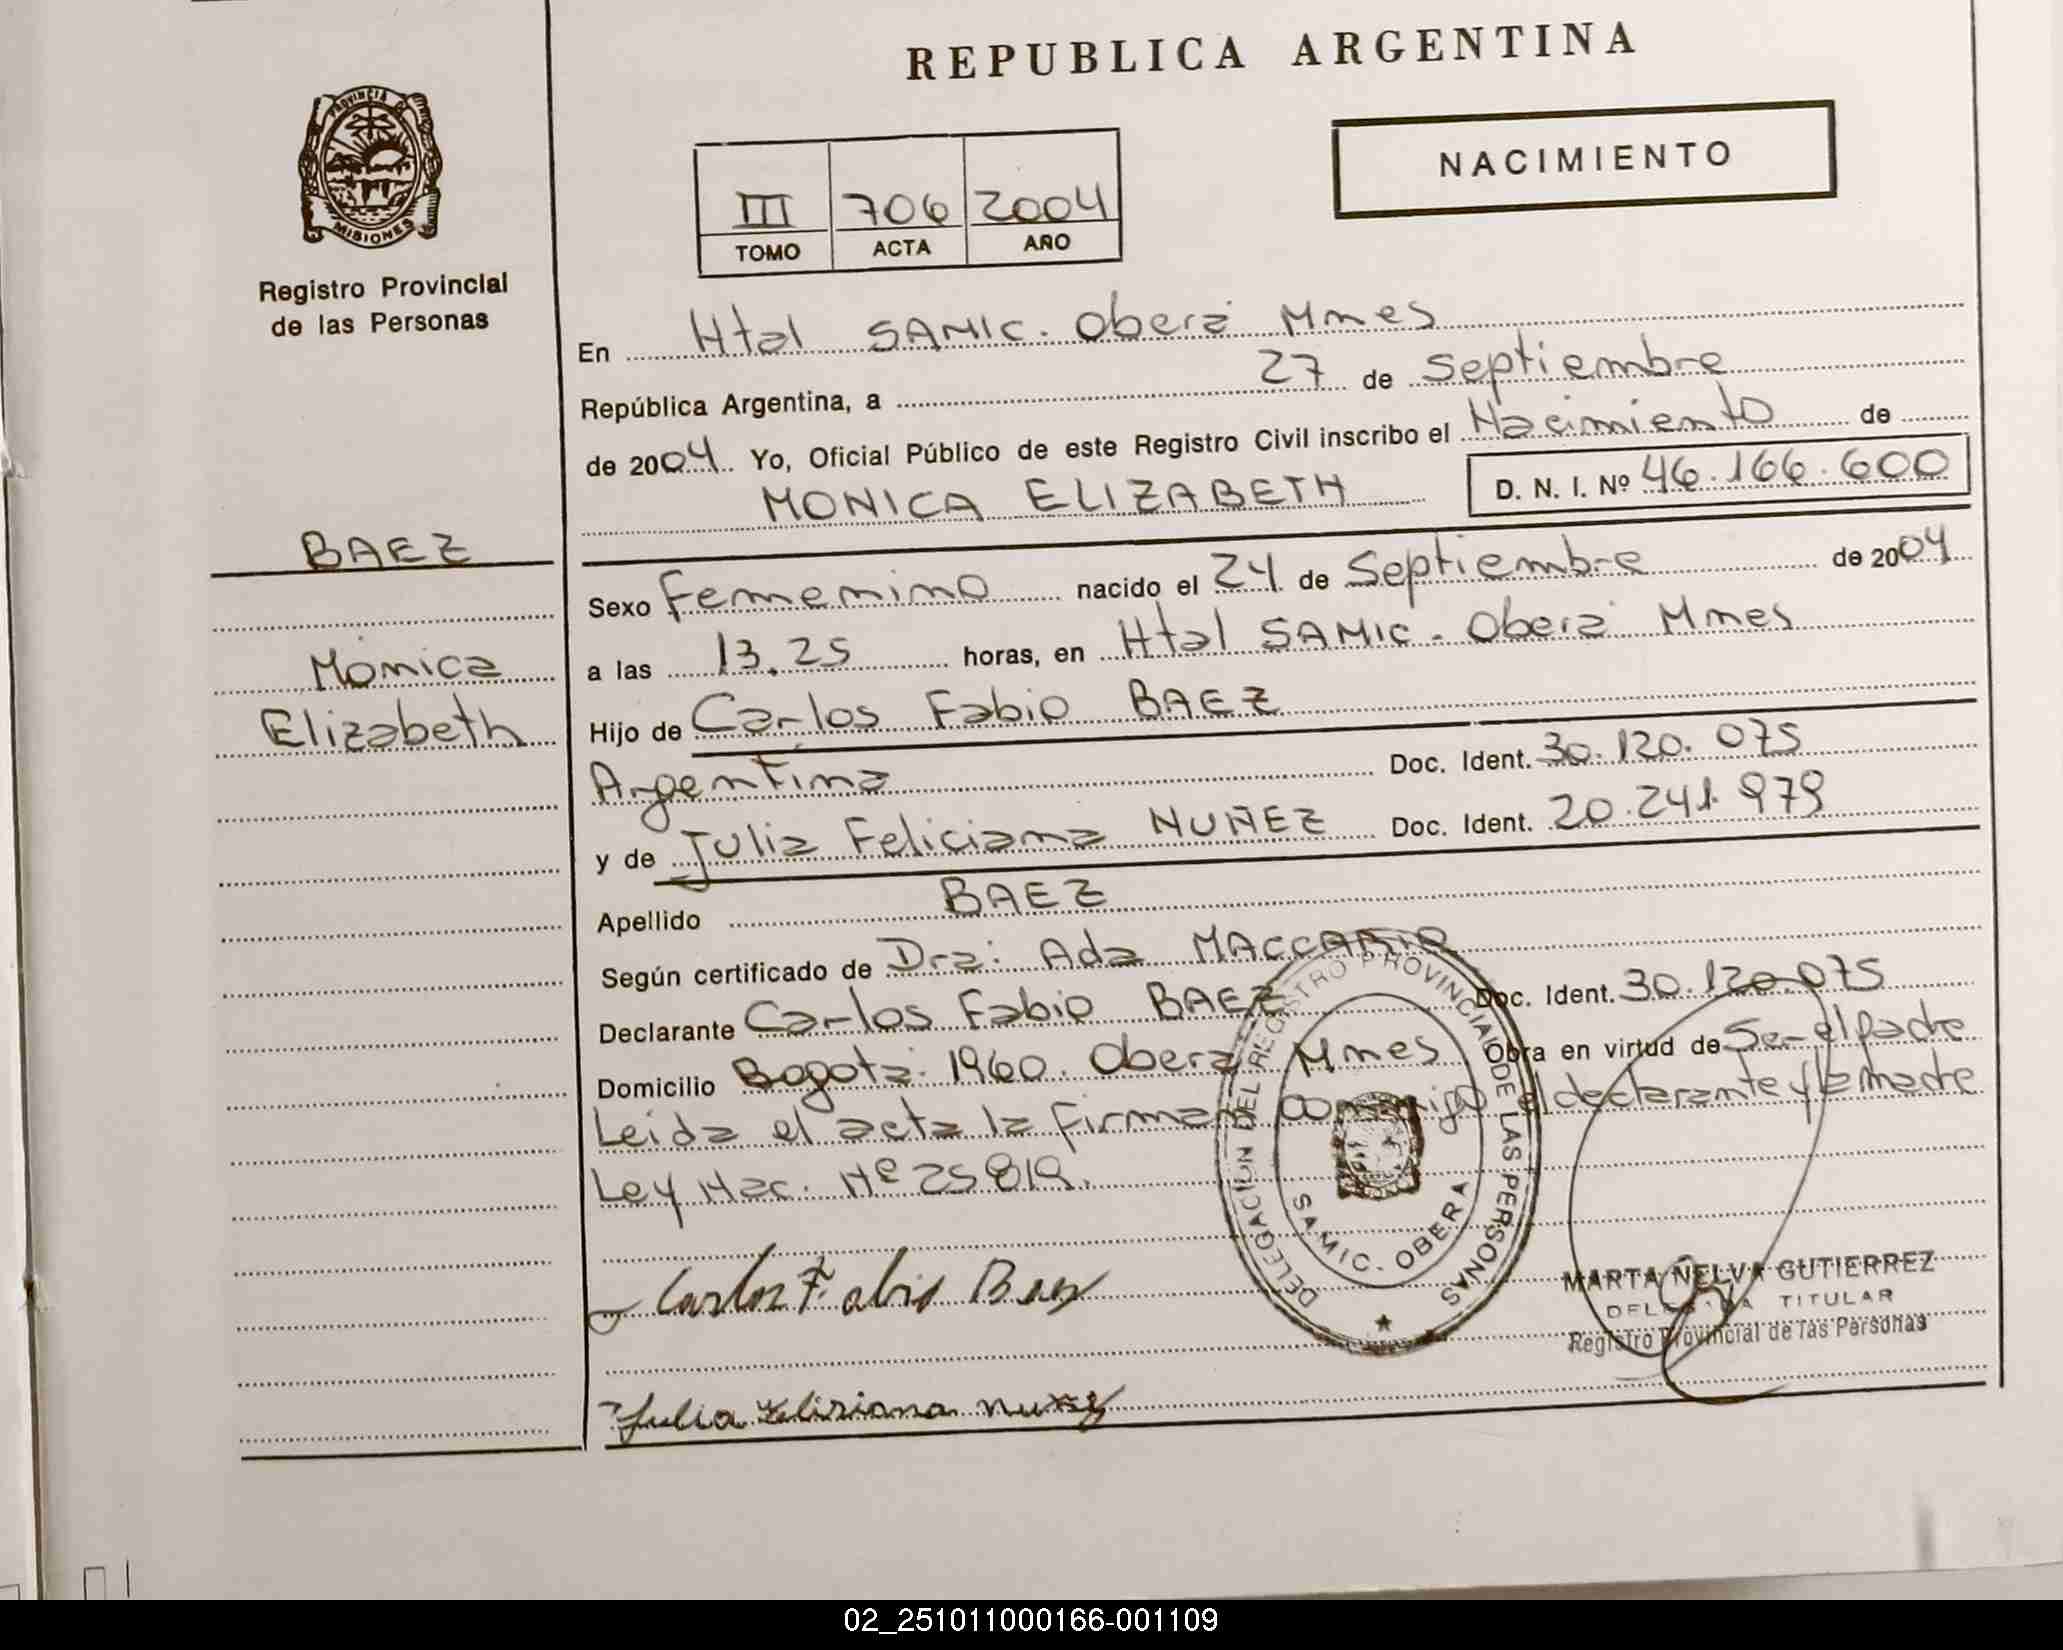 REPUBLICA ARGENTINA
PROVINCIA DE
MISIONES
NACIMIENTO
III 706 2004
TOMO ACTA AÑO
Registro Provincial
de las Personas
En Htal SAMIC. Oberá Mnes
República Argentina, a 27 de Septiembre
de 2004 Yo, Oficial Público de este Registro Civil inscribo el Nacimiento de
MONICA ELIZABETH D. N. I. Nº 46.166.600
BAEZ
Sexo Femenino nacido el 24 de Septiembre de 2004
Mónica
a las 13.25 horas, en Htal SAMIC - Oberá Mnes
Elizabeth
Hijo de Carlos Fabio BAEZ
Argentina Doc. Ident. 30.120.075
y de Julia Feliciana NUÑEZ Doc. Ident. 20.241.979
Apellido BAEZ
Según certificado de Dra: Ada MACCARIO
Declarante Carlos Fabio BAEZ Doc. Ident. 30.120.075
Domicilio Bogotá 1960. Oberá Mnes Obra en virtud de Ser el padre
Leida el acta la firman conmigo el declarante y la madre
Ley Nac. Nº 25819.
DELEGACION DEL REGISTRO PROVINCIAL DE LAS PERSONAS
SAMIC. OBERA
Carlos Fabio Baez
MARTA NELVA GUTIERREZ
DELEGADA TITULAR
Registro Provincial de las Personas
Julia Felisiana Nuñez
02_251011000166-001109